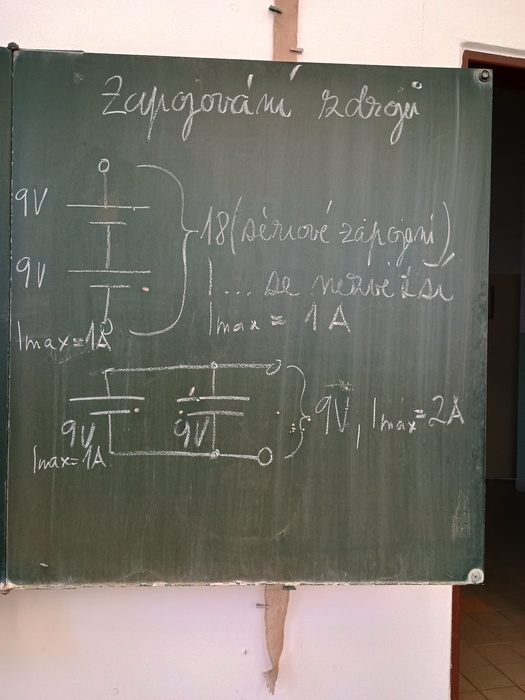 Zapojování zdrojů
9V
18(sériové zápojení)
9V
I... se nezvětší
Imax = 1A
Imax = 1A
9V
9V
9V, Imax = 2A
Imax = 1A